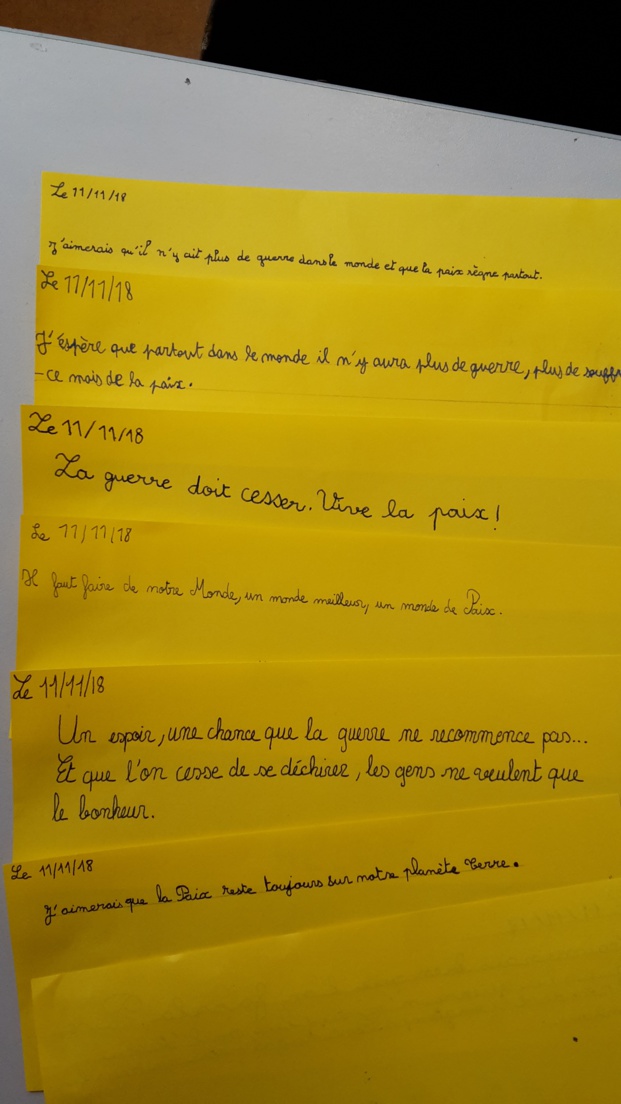 Le 11/11/18
J'aimerais qu'il n'y ait plus de guerre dans le monde et que la paix règne partout.
Le 11/11/18
J'éspère que partout dans le monde il n'y aura plus de guerre, plus de
-ce mois de la paix.
Le 11/11/18
La guerre doit cesser. Vive la paix!
Le 11/11/18
Il faut faire de notre Monde, un monde meilleur, un monde de Paix.
Le 11/11/18
Un espoir, une chance que la guerre ne recommence pas...
Et que l'on cesse de se déchirer, les gens ne veulent que
le bonheur.
Le 11/11/18
J'aimerais que la Paix reste toujours sur notre planète Terre.